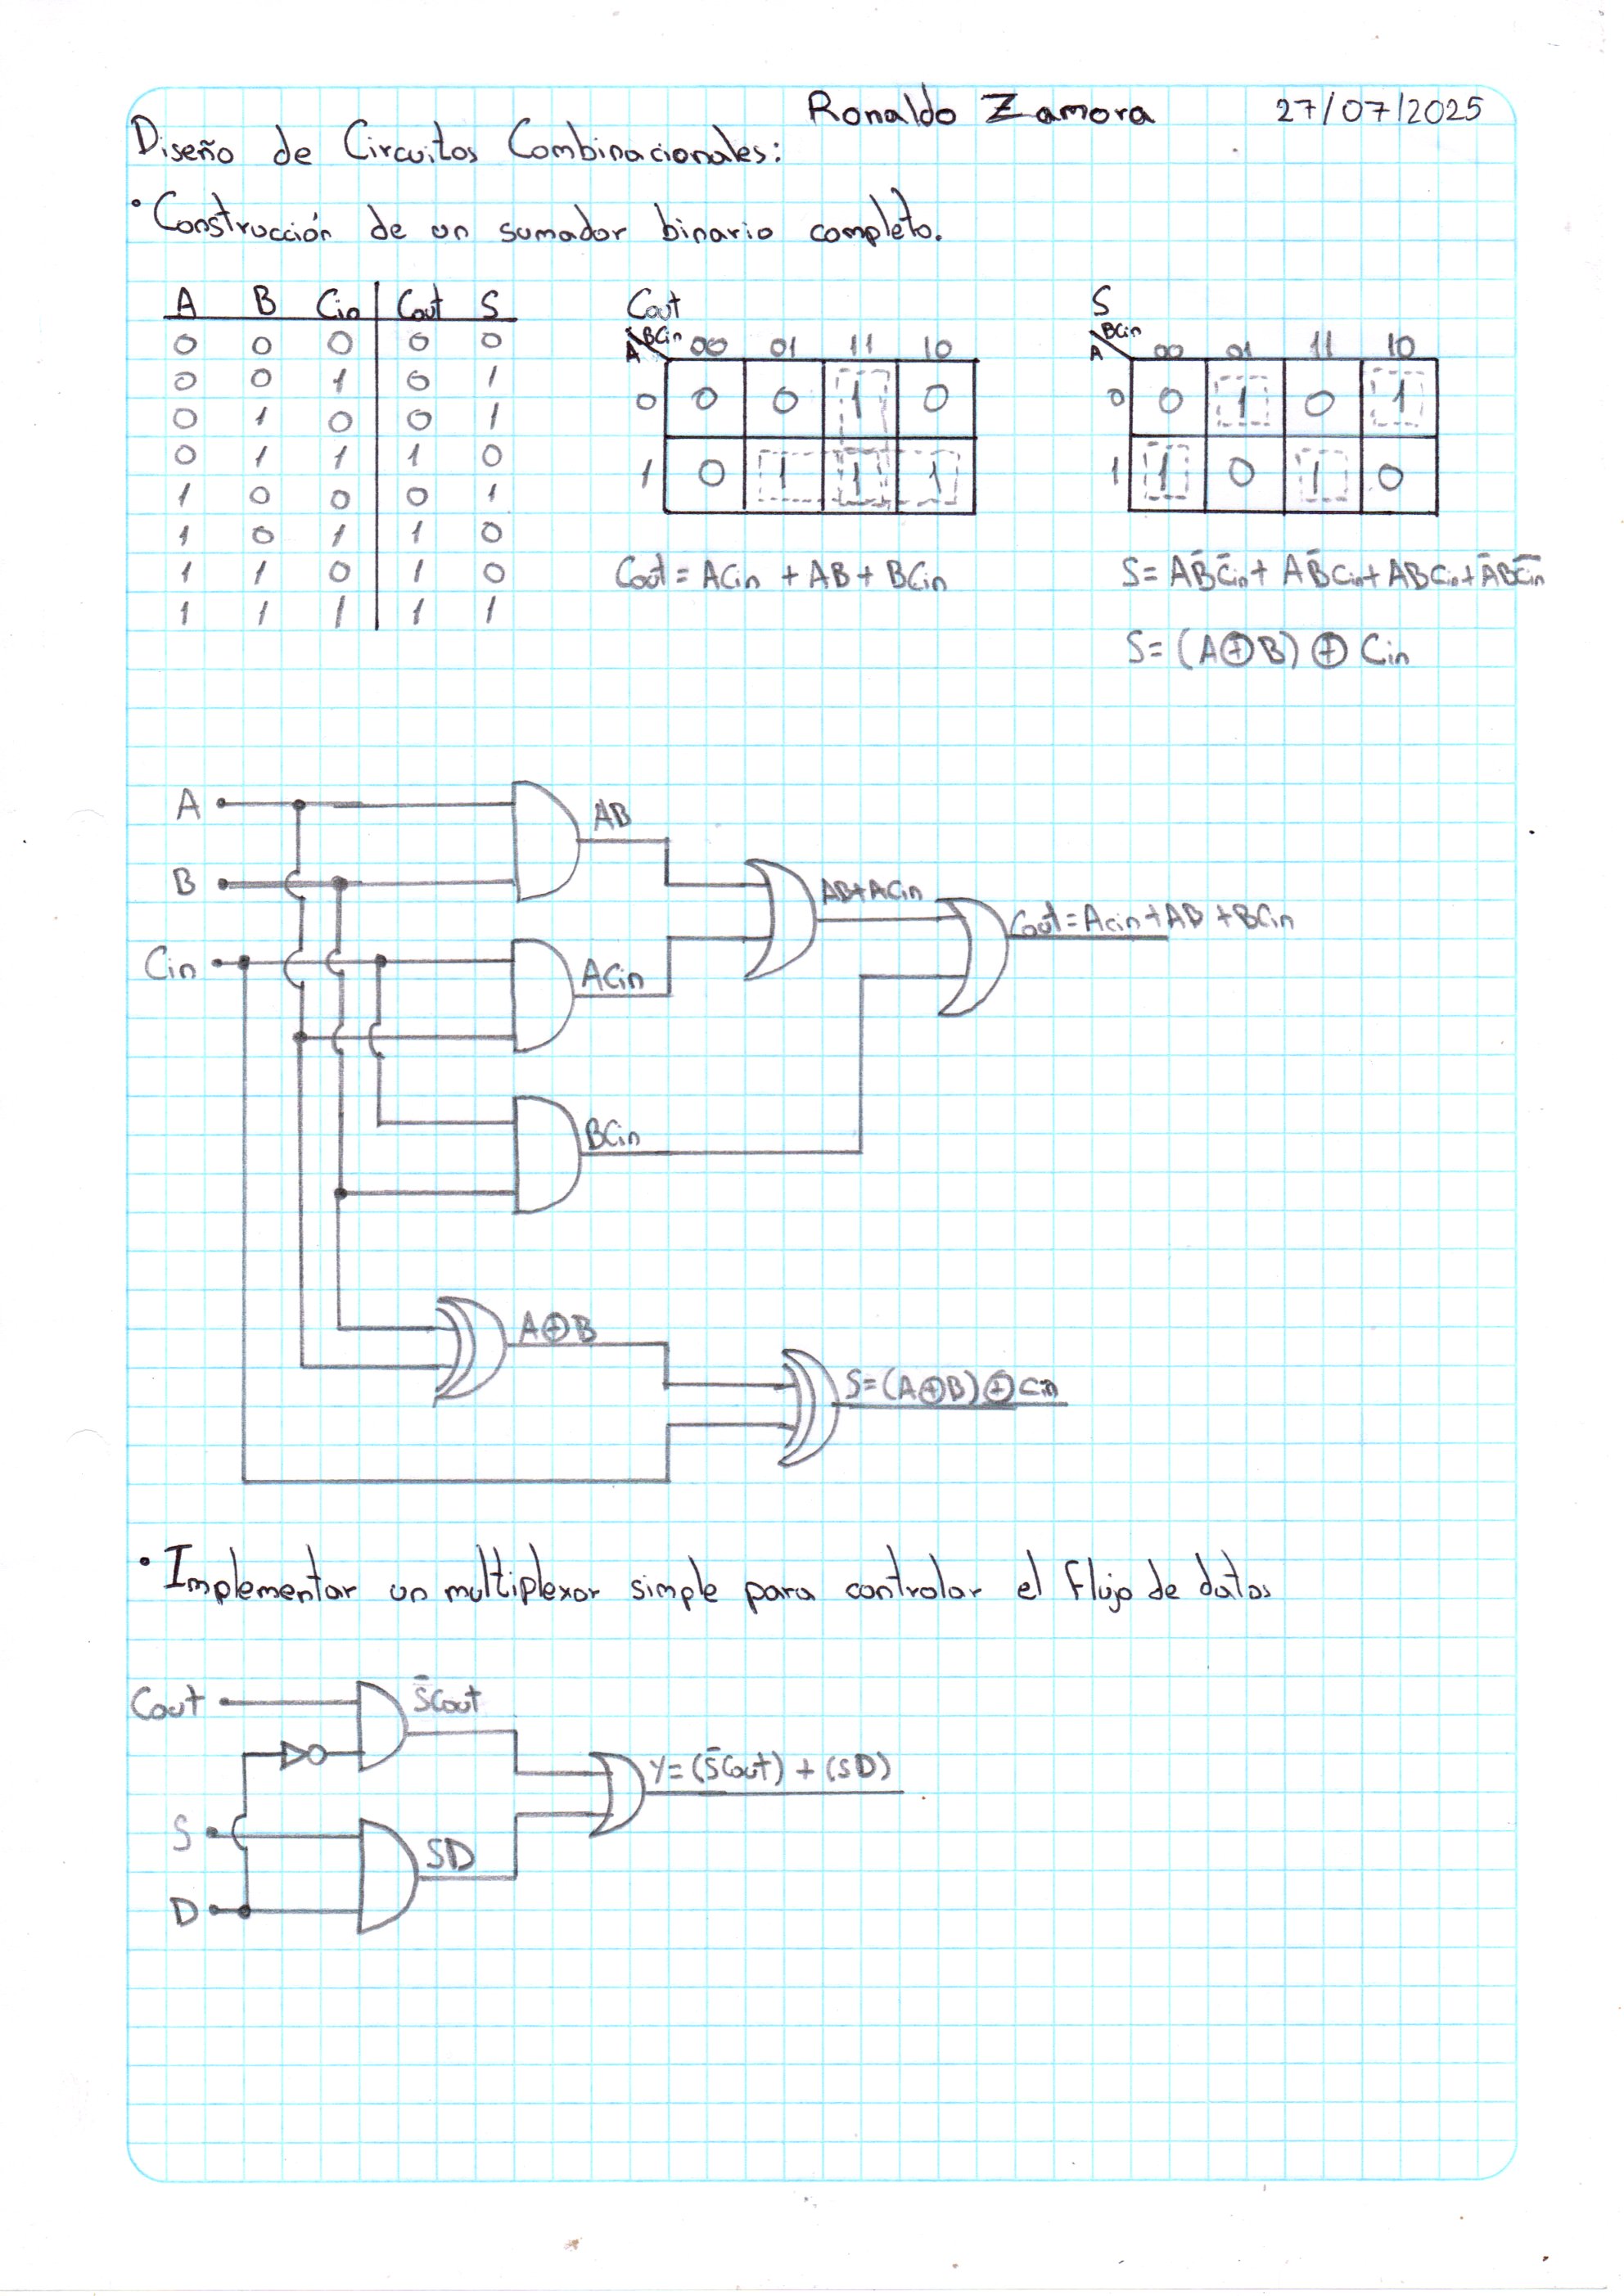 Ronaldo Zamora 27/07/2025
Diseño de Circuitos Combinacionales:
• Construcción de un sumador binario completo.
A B Cin Cout S
0 0 0 0 0
0 0 1 0 1
0 1 0 0 1
0 1 1 1 0
1 0 0 0 1
1 0 1 1 0
1 1 0 1 0
1 1 1 1 1
Cout
BCin
A
00 01 11 10
0 0 0 1 0
1 0 1 1 1
Cout = ACin + AB + BCin
S
BCin
A
00 01 11 10
0 0 1 0 1
1 1 0 1 0
S= AB̄C̄in + AB̄Cin + ABCin + ĀBC̄in
S= (A⊕B) ⊕ Cin
A
AB
B
AB+ACin
Cout = Acin + AB + BCin
Cin
ACin
BCin
A⊕B
S=(A⊕B)⊕Cin
• Implementar un multiplexor simple para controlar el flujo de datos
Cout
S̄Cout
Y=(S̄Cout) + (SD)
S
SD
D